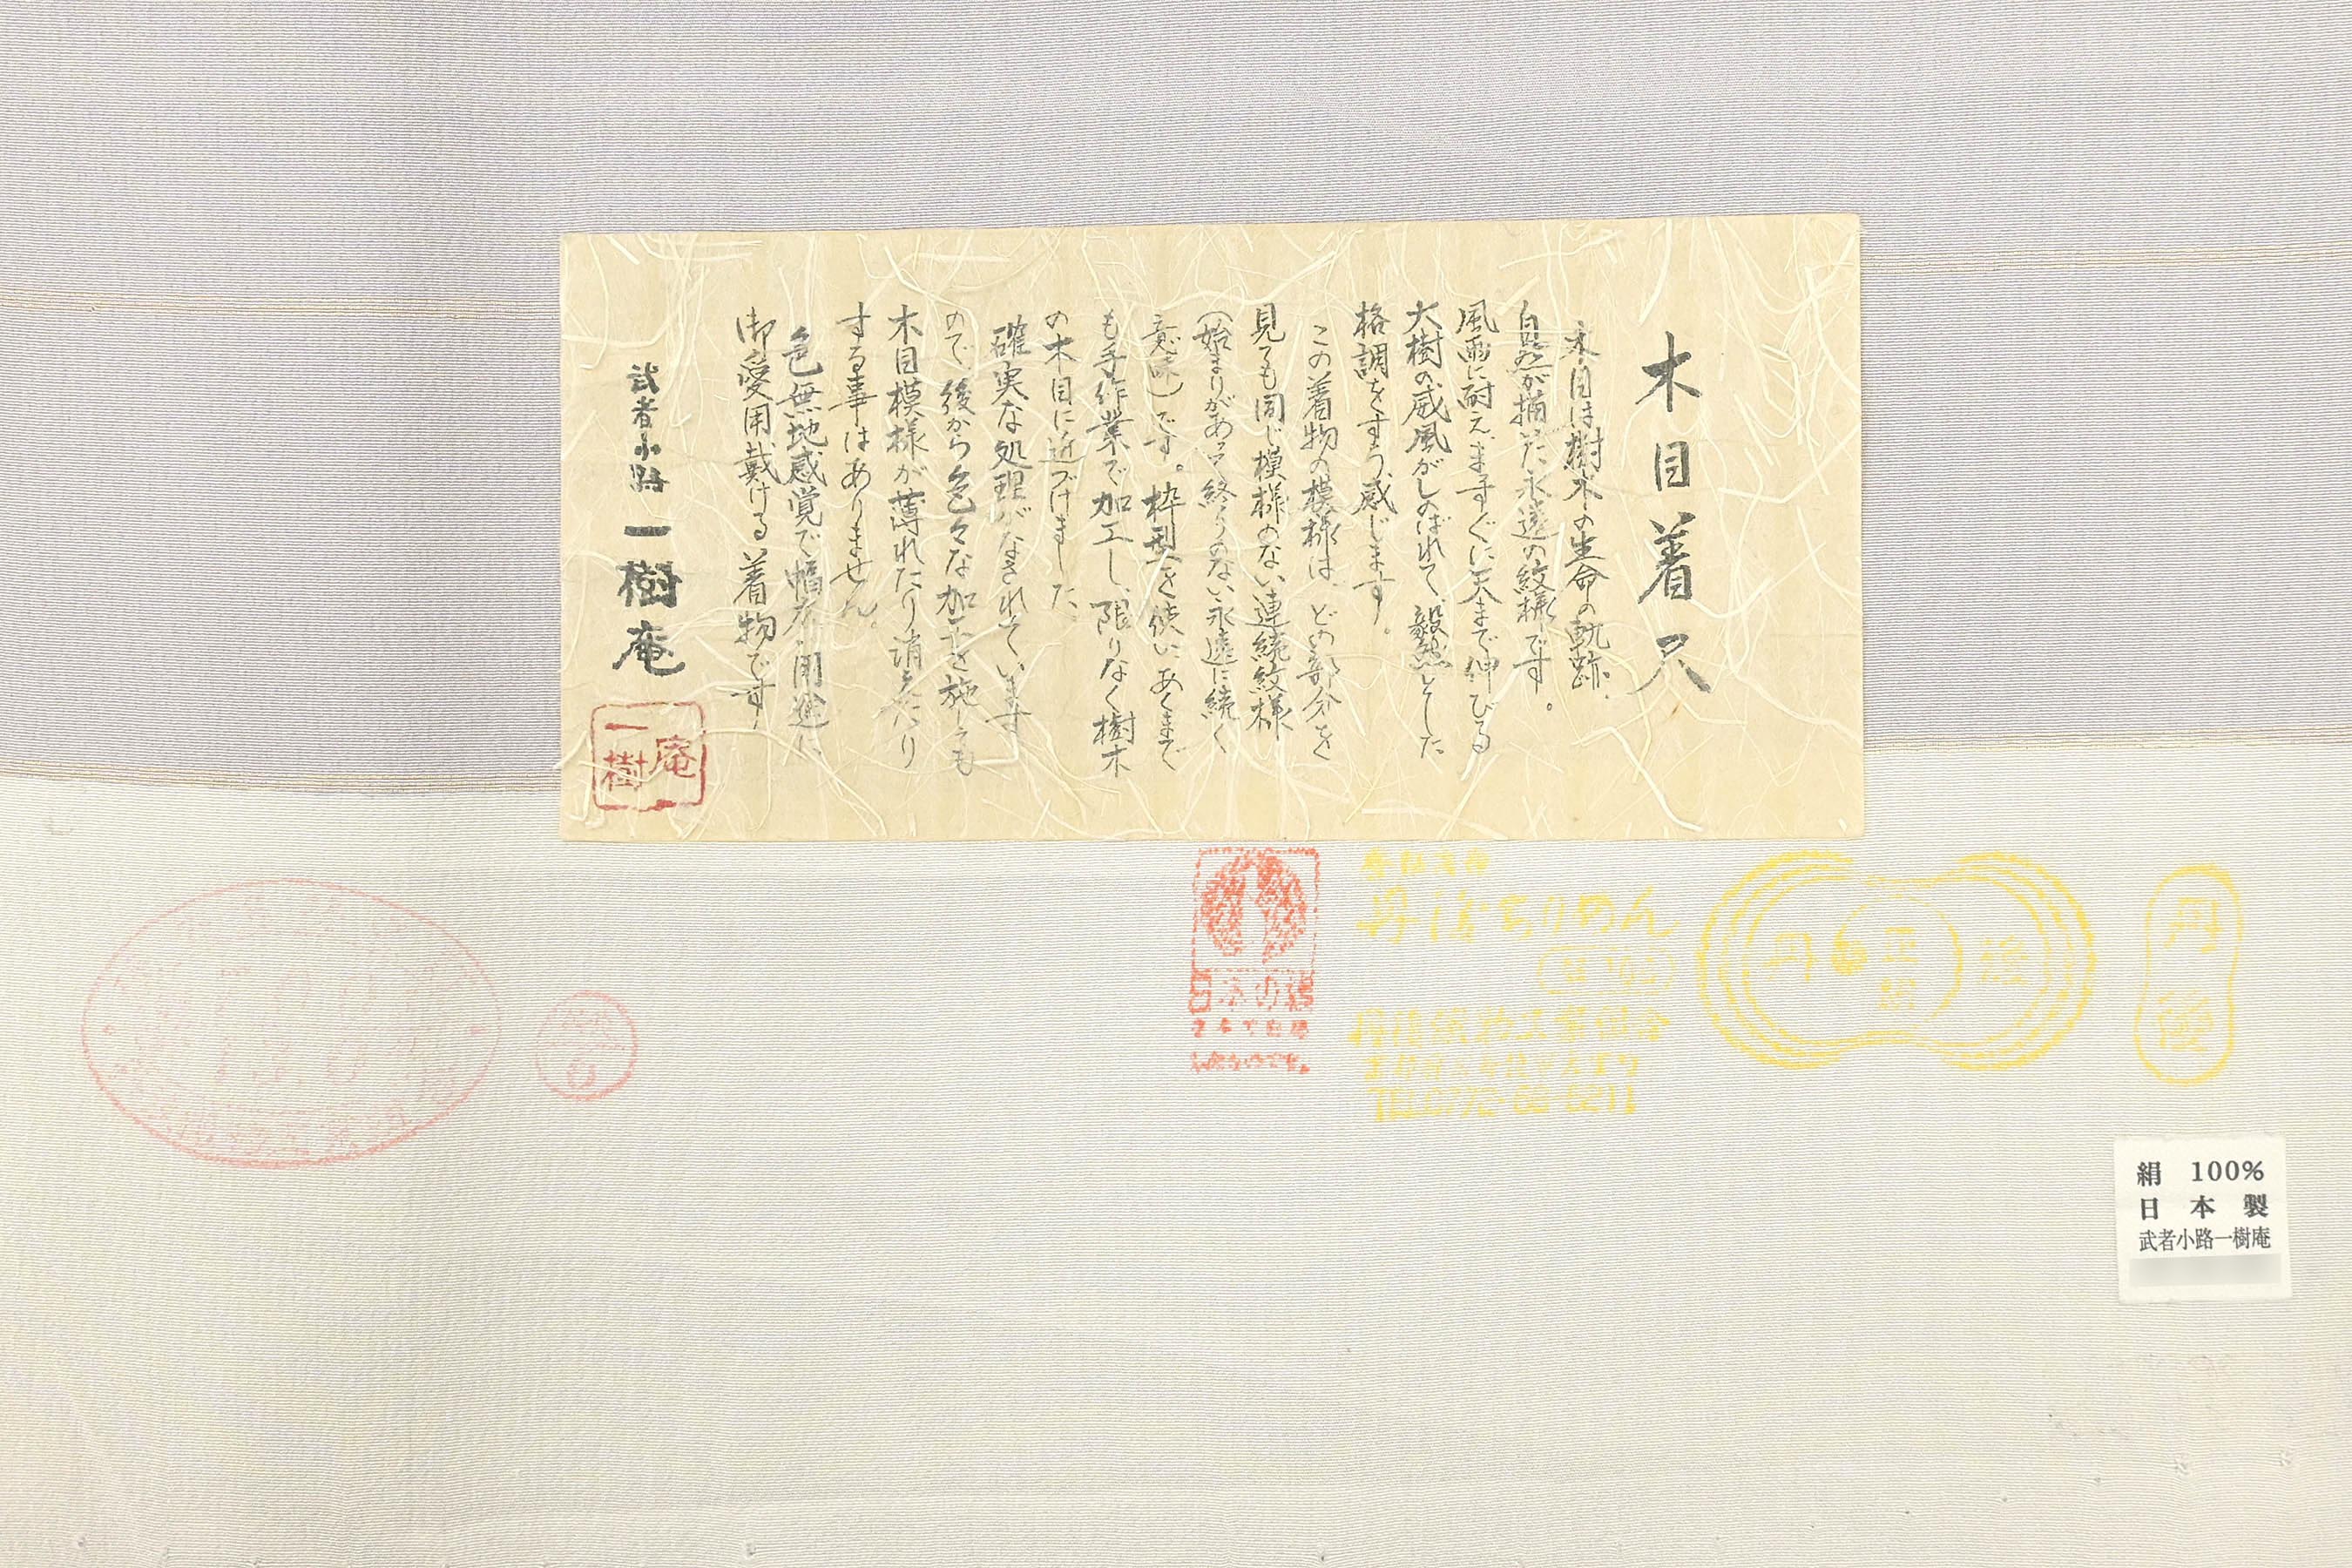 木目着尺
木目は樹木の生命の軌跡、
自然が描いた永遠の紋様です。
風雨に耐え、ますぐに天まで伸びる
大樹の威風がしのばれて、毅然とした
格調をすら、感じます。
この着物の模様は、どの部分を
見ても同じ模様のない連続紋様
(始まりがあって終りのない永遠に続く
意味)です。枠型を使い、あくまで
も手作業で加工し、限りなく樹木
の木目に近づけました。
確実な処理がなされています
ので、後から色々な加工を施しても
木目模様が薄れたり消えたり
する事はありません。
色無地感覚で幅広い用途に
御愛用戴ける着物です
武者小路 一樹庵
一樹庵
日本の絹
丹後ちりめん
丹後織物工業組合
丹 後
丹後
絹 100%
日本製
武者小路一樹庵